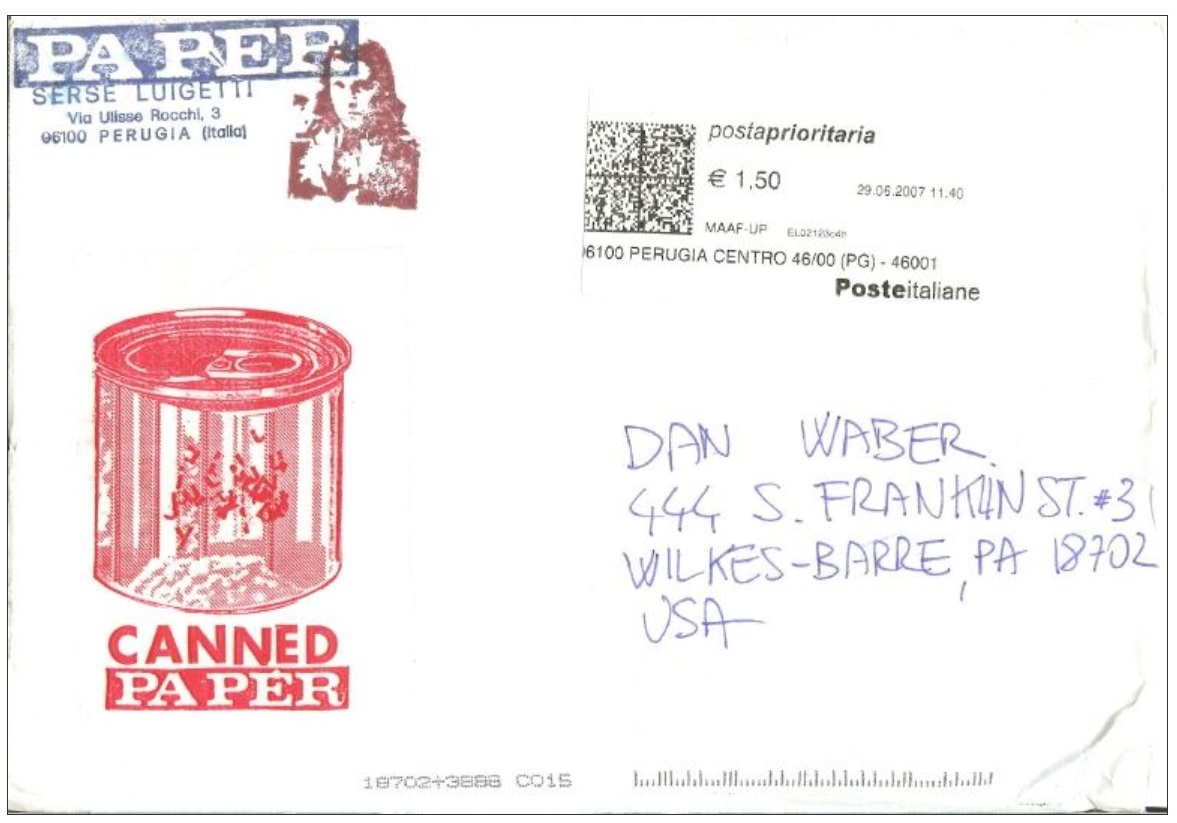 PAPER
SERSE LUIGETTI
Via Ulisse Rocchi, 3
06100 PERUGIA (Italia)
postaprioritaria
€ 1,50
29.06.2007 11.40
MAAF-UP
06100 PERUGIA CENTRO 46/00 (PG) - 46001
Posteitaliane
DAN WABER
444 S. FRANKLIN ST. #3
WILKES-BARRE, PA 18702
USA
CANNED
PAPER
18702+3888 C015